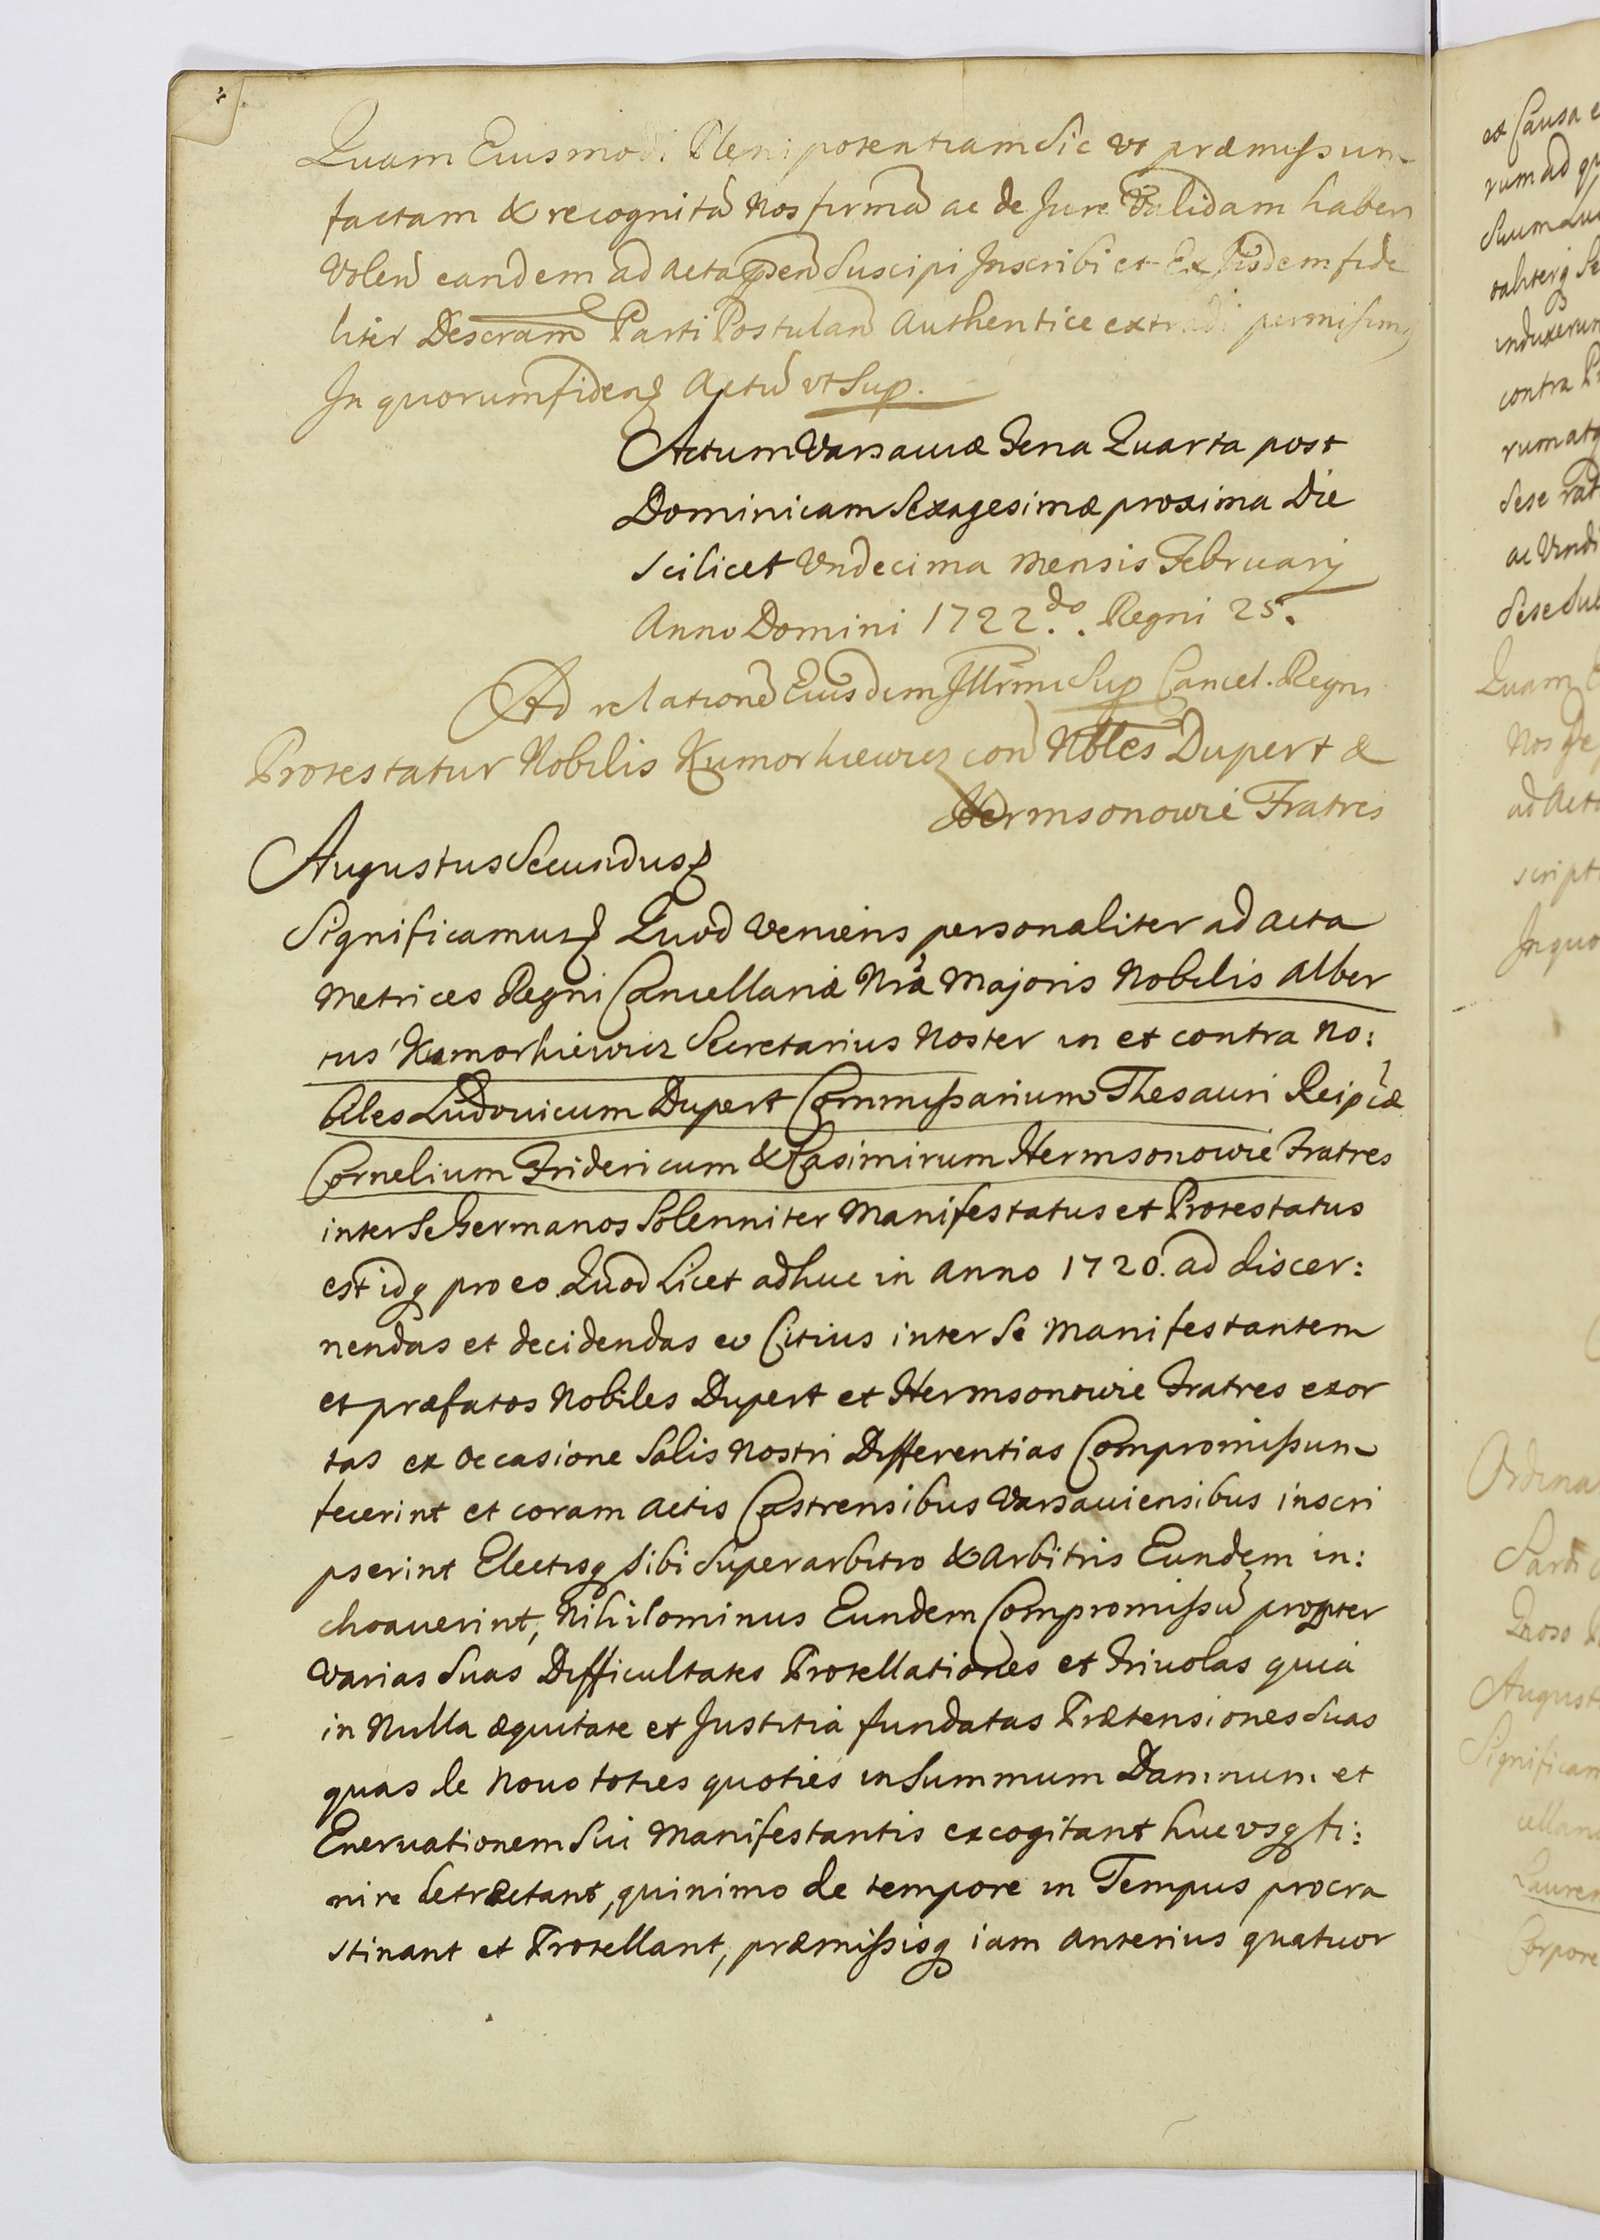 Quam Eiusmodi Plenipotentiam Sic vt præmissum
factam & recognitã Nos firmã ac de Jure Validam haberi
Volen̄ eandem ad Acta p̄sen̄ Suscipi Inscribi et Ex Jisdem fide
liter Descrãm Parti Postulan̄ Authentice extradi permisimq
In quorum fidem Actũ vt Sup.
Actum Varsaviæ Feria Quarta post
Dominicam Sexagesimæ proxima Die
scilicet Vndecima Mensis Februarij
Anno Domini 1722do. Regni 25.
Ad relationẽ Eiusdem Illrmi Sup Cancel. Regni
Protestatur Nobilis Kumorkiewicz con̄ Nbles Dupert &
Hermsonowie Fratres
Augustus Secundus
Significamus Quod Veniens personaliter ad Acta
Metrices Regni Cancellariæ Nrã Majoris Nobilis Alber
tus Kumorkiewicz Secretarius Noster in et contra No:
biles Ludovicum Dupert Commissarium Thesauri Reipcæ
Cornelium Fridericum & Casimirum Hermsonowie Fratres
inter Se Germanos Solenniter Manifestatus et Protestatus
est idq pro eo Quod Licet adhuc in Anno 1720. ad discer:
nendas et decidendas eo Citius inter Se Manifestantem
et præfatos Nobiles Dupert et Hermsonowie Fratres exor
tas ex occasione Salis Nostri Differentias Compromissum
fecerint et coram Actis Castrensibus Varsaviensibus inscri
pserint Electisq sibi Superarbitro & Arbitris Eundem in:
choaverint, Nihilominus Eundem Compromissũ propter
Varias Suas Difficultates Protellationes et Frivolas quia
in Nulla æquitate et Justitia fundatas Prætensiones Suas
quas de Novo toties quoties in Summum Damnum et
Enervationem Sui Manifestantis excogitant huc vsq fi:
nire detrectant, quinimo de tempore in Tempus procra
stinant et Protellant, præmissisq iam Anterius quatuor
et Causa
rum ad
contra
sese
Quam
ad Acta
Ordina
August
Significam
cellaria
Lauren
Corpore